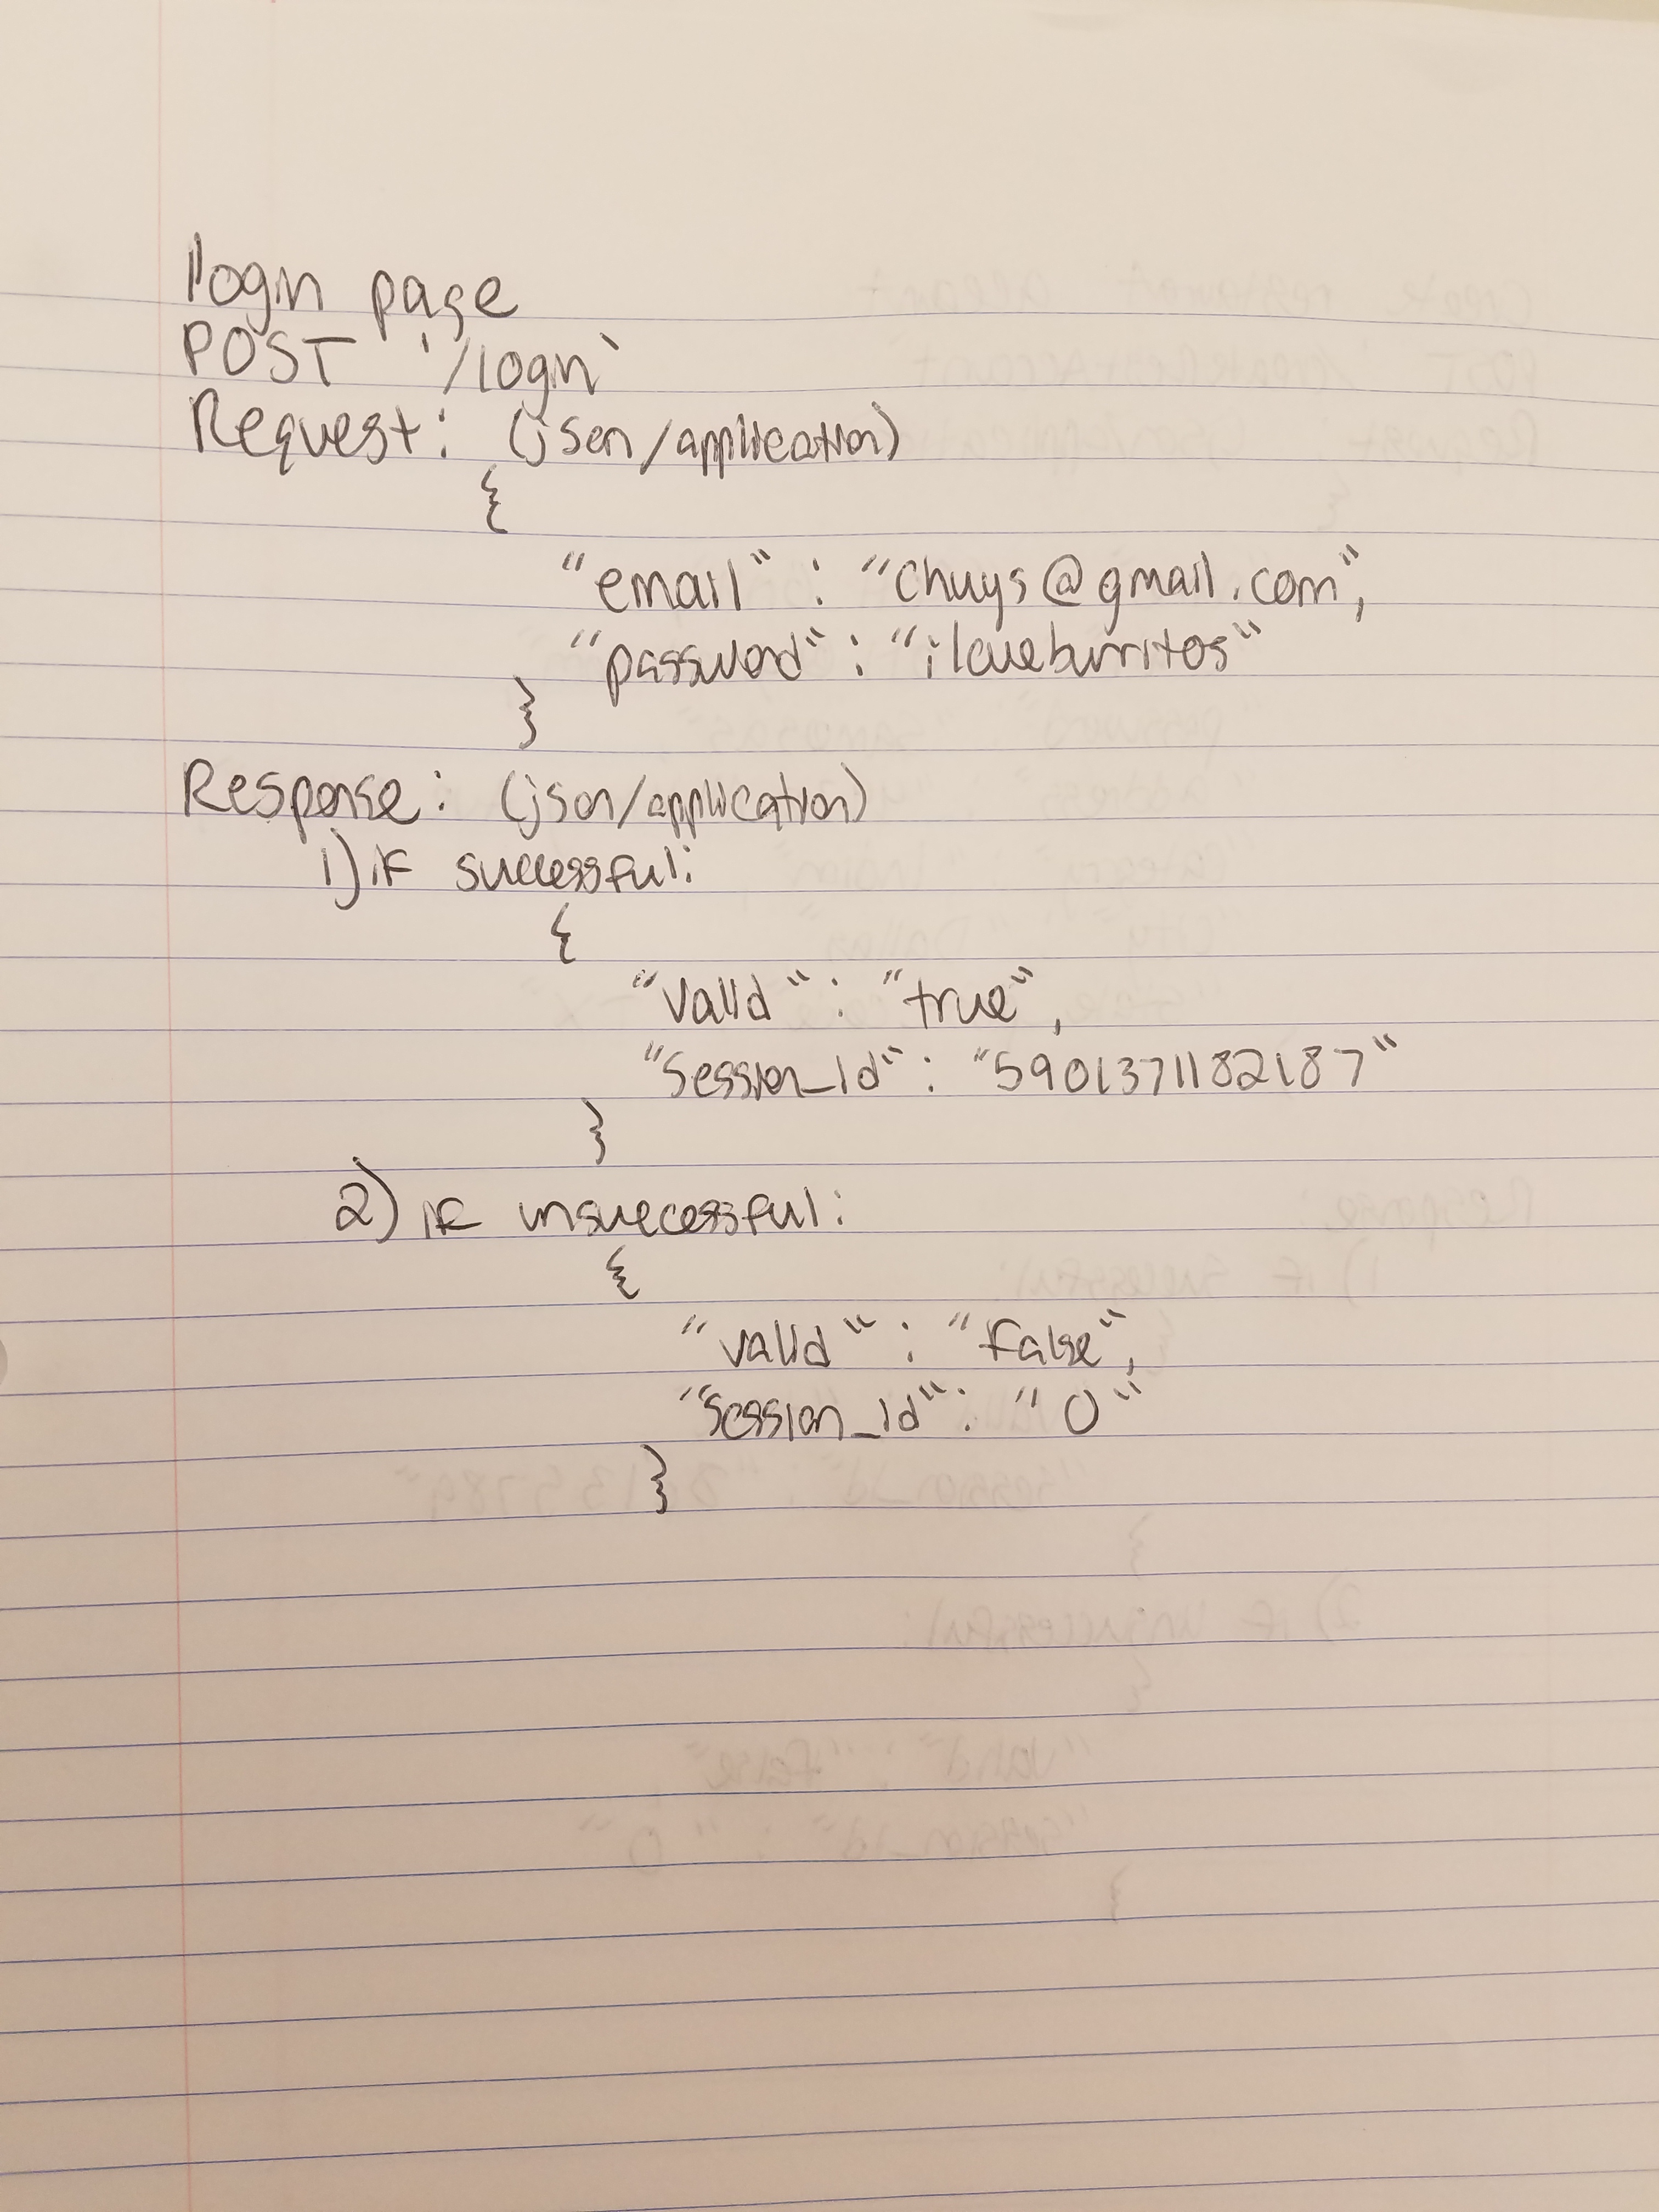 login page
POST '/login'
Request: (json/application)
{
"email" : "chuys@gmail.com",
"password" : "iloveburritos"
}
Response: (json/application)
1) if successful:
{
"valid" : "true",
"session_id" : "5901371182187"
}
2) if unsuccessful:
{
"valid" : "false",
"session_id" : "0"
}